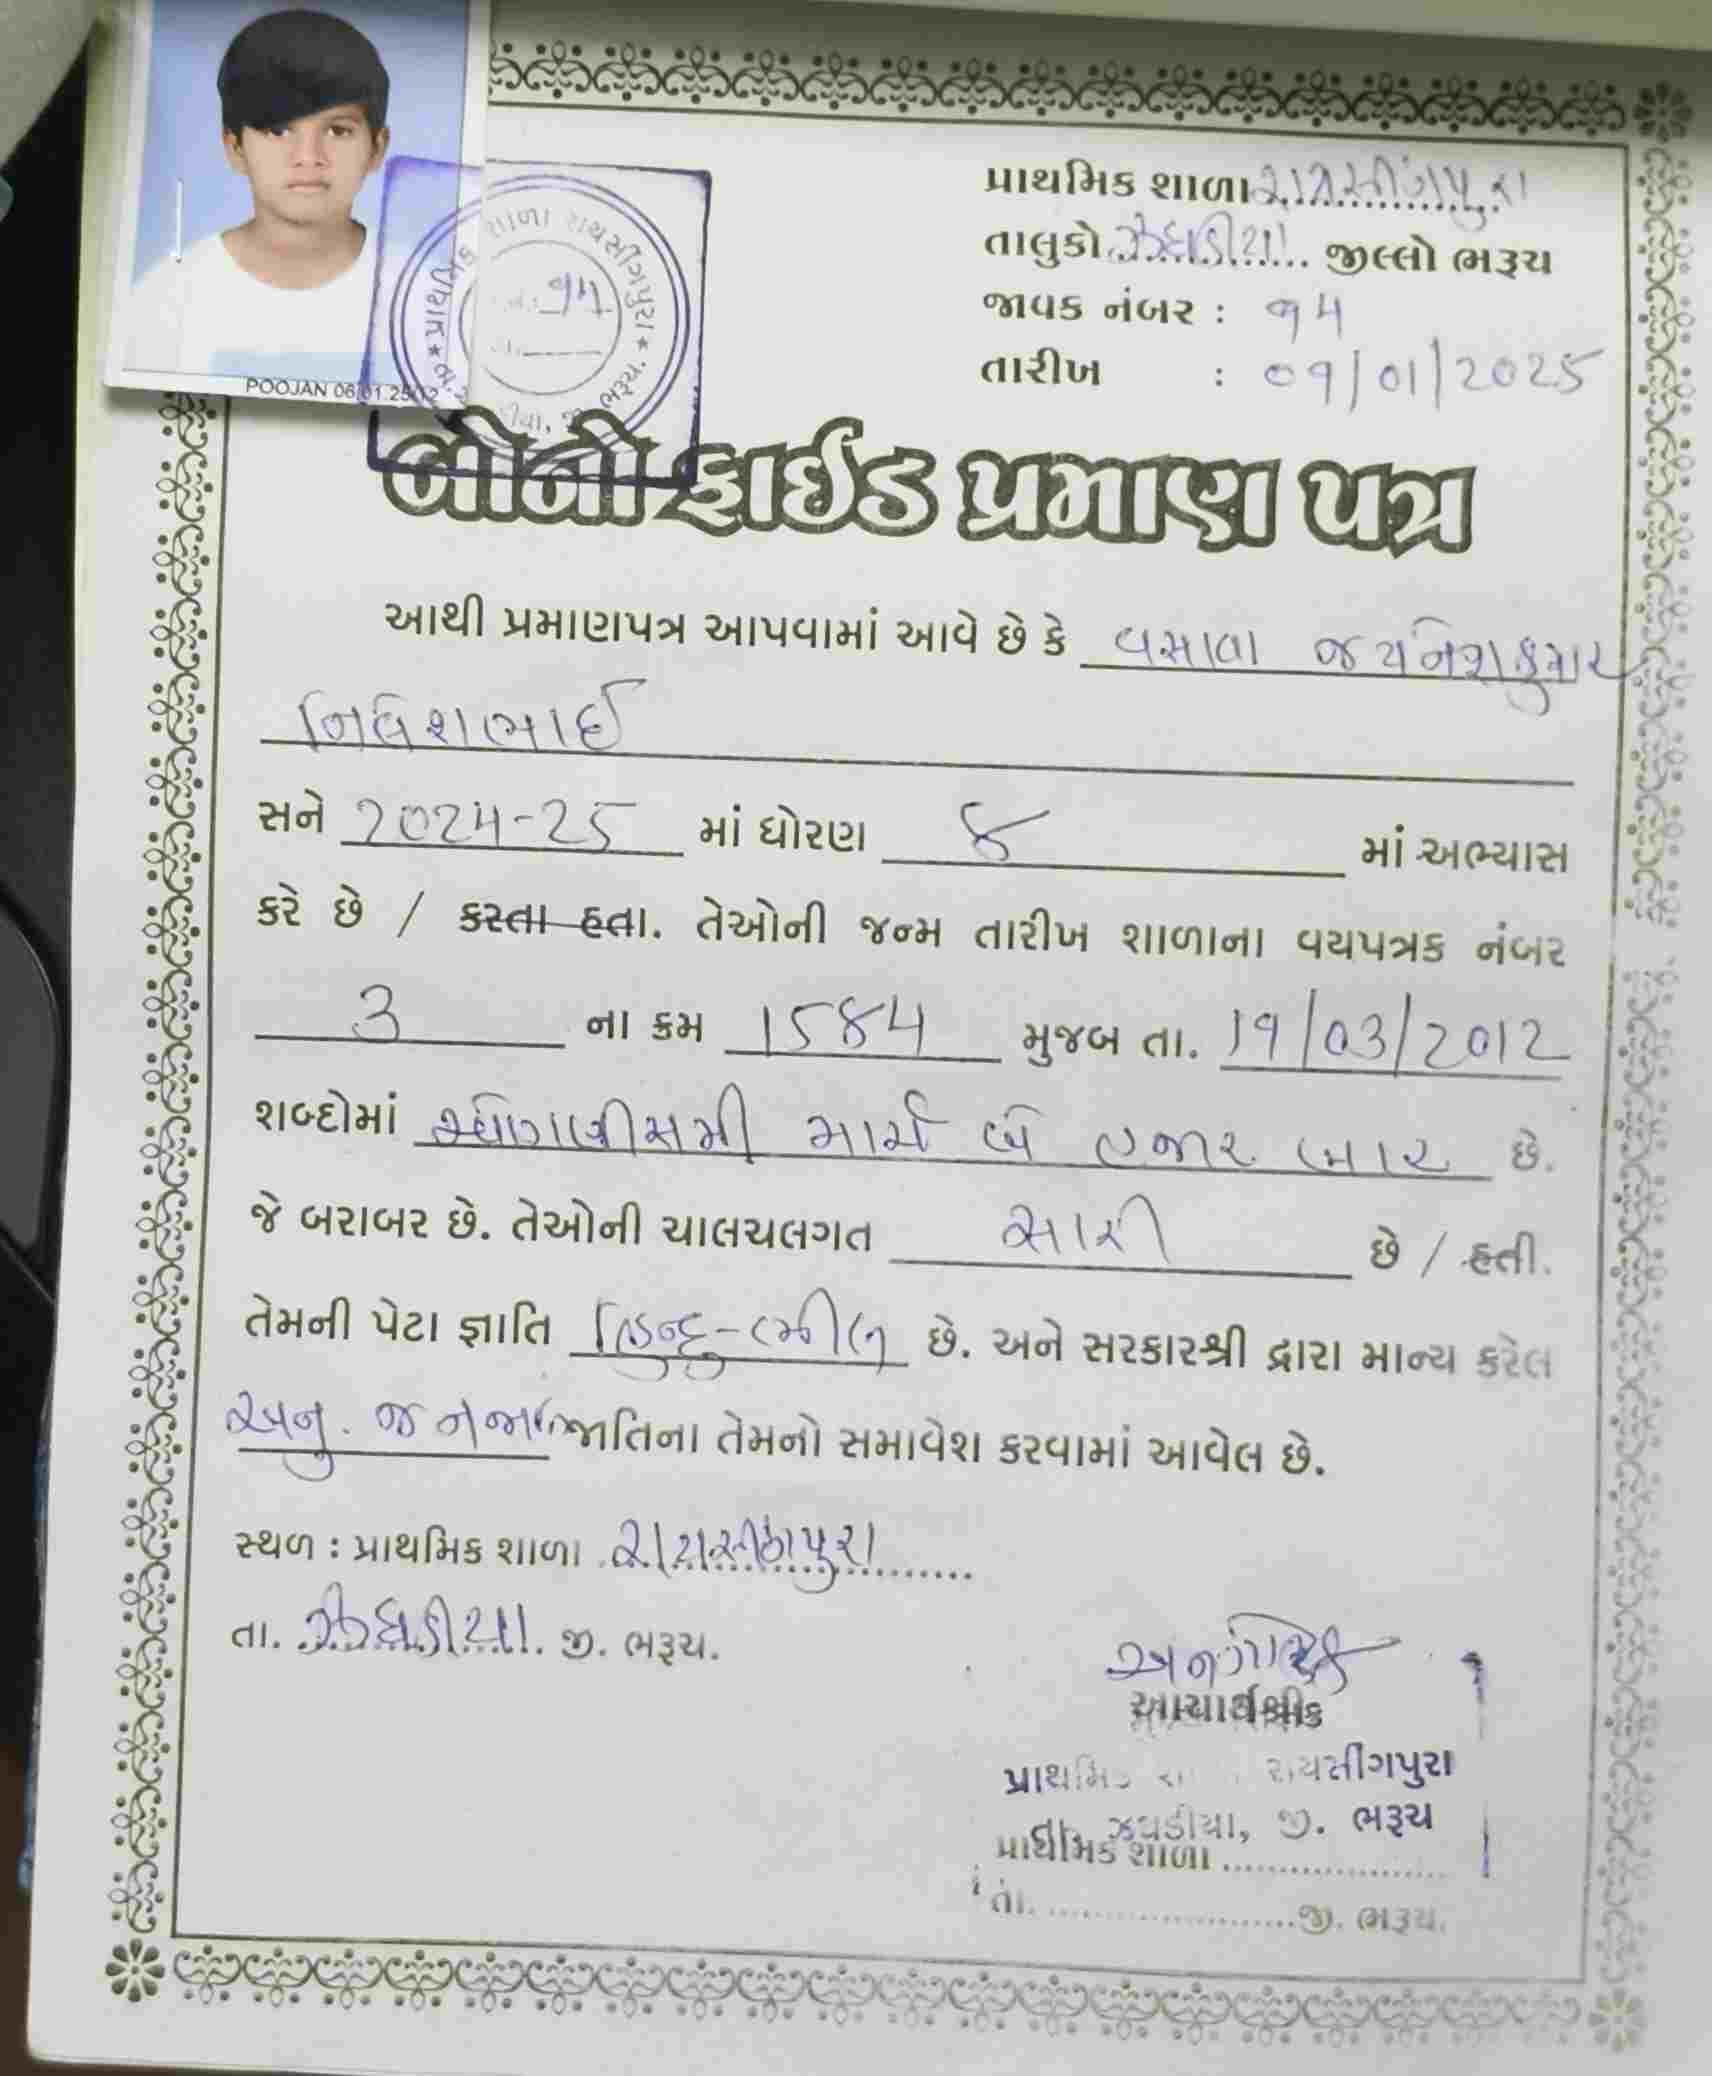 પ્રાથમિક શાળા રાયસીંગપુરા
તાલુકો ઝઘડીયા જીલ્લો ભરૂચ
જાવક નંબર : ૧૫
તારીખ : ૦૧/૦1/2025
પ્રાથમિક શાળા રાયસીંગપુરા
૧૫
જી. ભરૂચ.
POOJAN 06.01.25
બોનોફાઈડ પ્રમાણ પત્ર
આથી પ્રમાણપત્ર આપવામાં આવે છે કે વસાવા જયનેશકુમાર
સને 2024-25 માં ધોરણ ૪ માં અભ્યાસ
કરે છે / કરતા હતા. તેઓની જન્મ તારીખ શાળાના વયપત્રક નંબર
3 ના ક્રમ 1584 મુજબ તા. 19/03/2012
શબ્દોમાં ઓગણીસમી માર્ચ બે હજાર બાર છે.
જે બરાબર છે. તેઓની ચાલચલગત સારી છે / હતી.
તેમની પેટા જ્ઞાતિ હિન્દુ-ભીલ છે. અને સરકારશ્રી દ્વારા માન્ય કરેલ
અનુ. જનજાતિ જાતિના તેમનો સમાવેશ કરવામાં આવેલ છે.
સ્થળ : પ્રાથમિક શાળા રાયસીંગપુરા
તા. ઝઘડીયા જી. ભરૂચ.
આચાર્યશ્રી
પ્રાથમિક શાળા રાયસીંગપુરા
તા. ઝઘડીયા, જી. ભરૂચ
પ્રાથમિક શાળા ....................
તા. ......................જી. ભરૂચ.